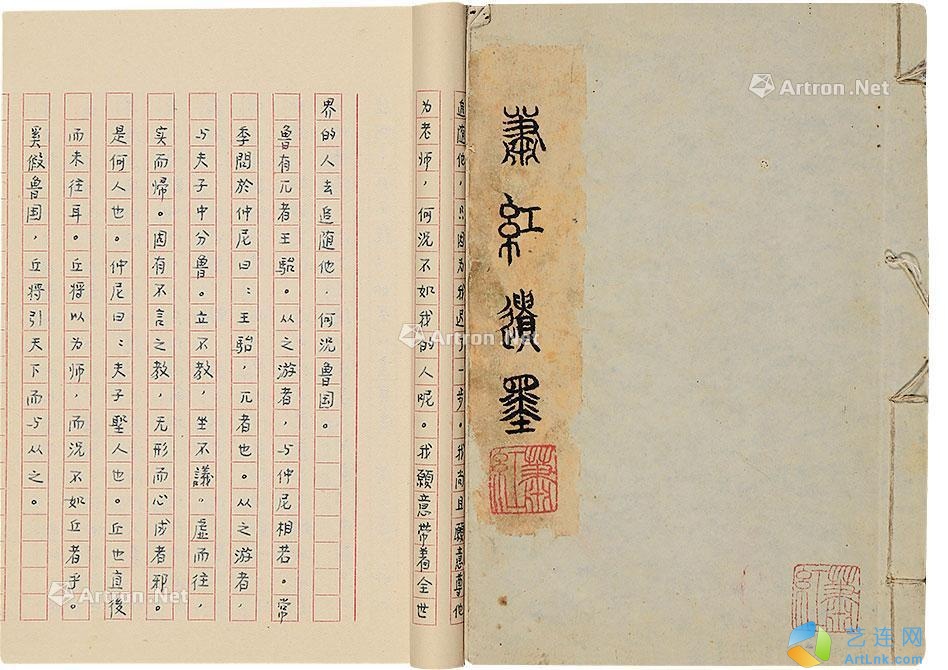 蕭紅遺墨
蕭紅
蕭紅
追随他，只因为我迟了一步。我尚且願意尊他
为老师，何况不如我的人呢。我願意带着全世
界的人去追随他，何况鲁国。
鲁有兀者王骀。从之游者，与仲尼相若。常
季問於仲尼曰：王骀，兀者也。从之游者，
与夫子中分鲁。立不教，坐不議。虚而往，
实而帰。固有不言之教，无形而心成者邪。
是何人也。仲尼曰：夫子聖人也。丘也直後
而未往耳。丘将以为师，而况不如丘者乎。
奚假鲁国，丘将引天下而与从之。
Artron.Net
Artron.Net
Artron.Net
Artron.Net
艺连网
ArtLnk.com